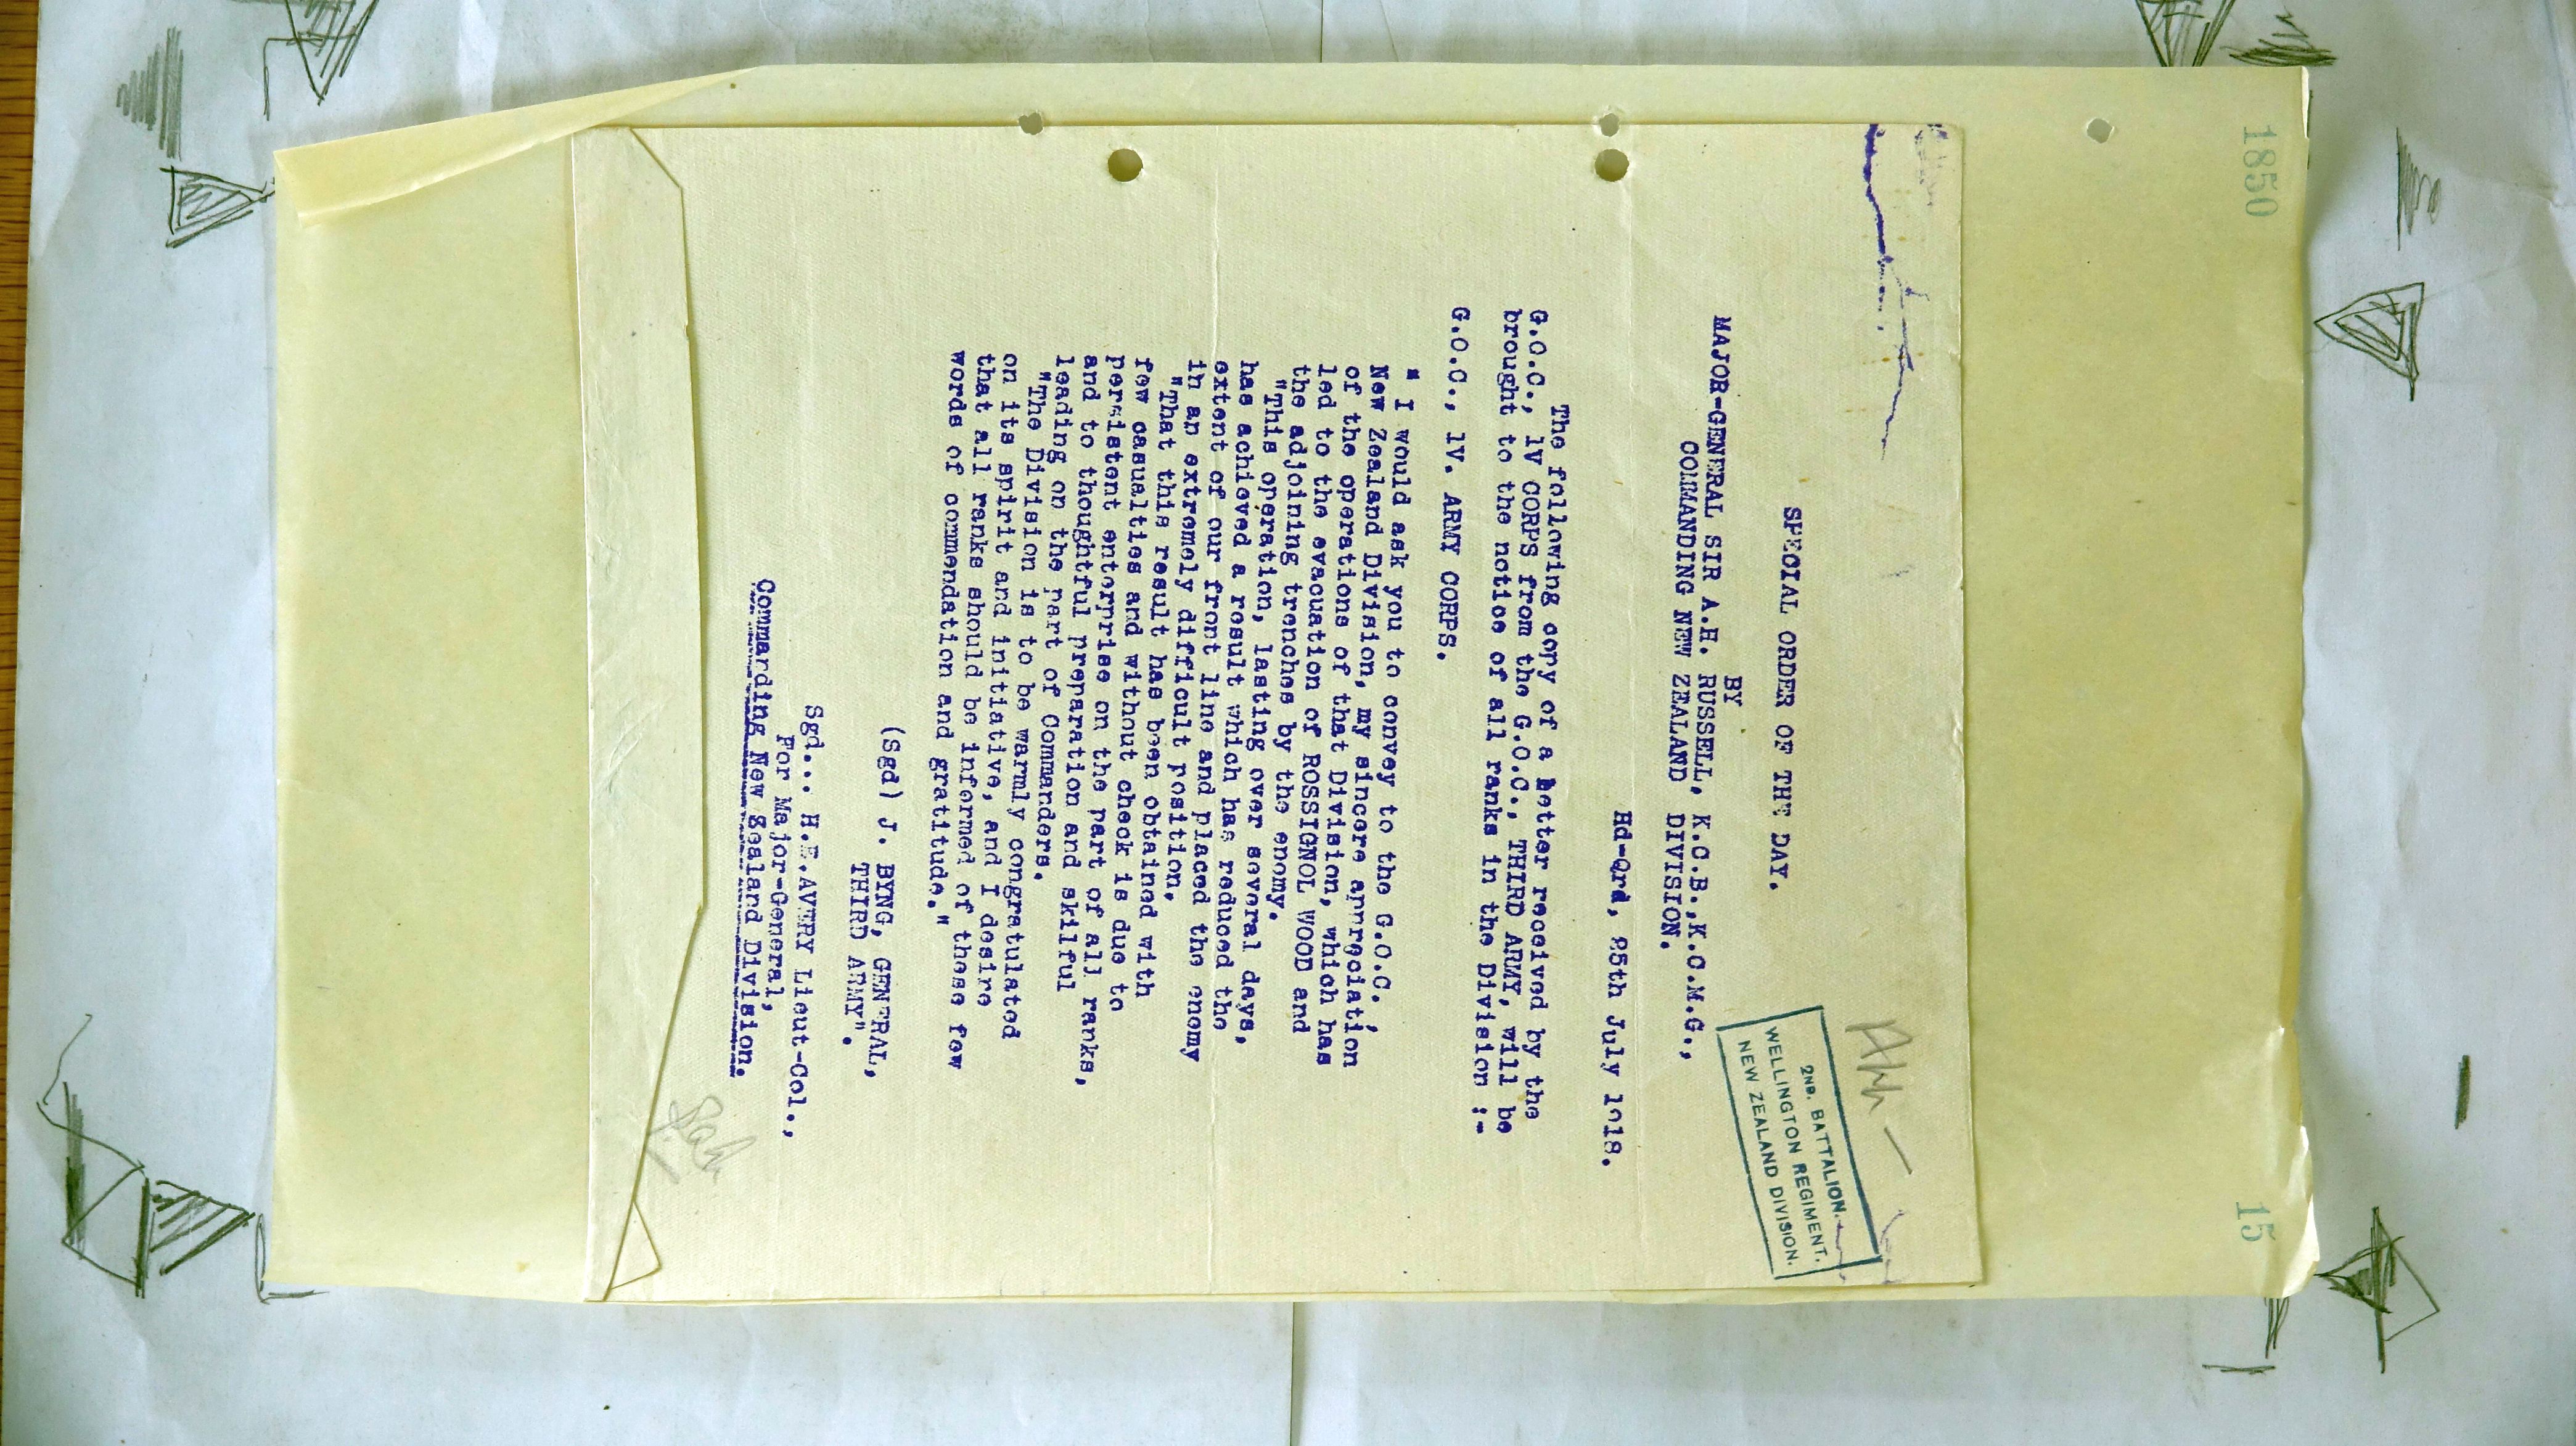 1850
15
2ND. BATTALION.
WELLINGTON REGIMENT.
NEW ZEALAND DIVISION.
SPECIAL ORDER OF THE DAY.
BY
MAJOR-GENERAL SIR A.H. RUSSELL, K.C.B.,K.C.M.G.,
COMMANDING NEW ZEALAND DIVISION.
Hd-Qrd, 25th July 1918.
The following copy of a letter received by the
G.O.C., 1V CORPS from the G.O.C., THIRD ARMY, will be
brought to the notice of all ranks in the Division :-
G.O.C., 1V. ARMY CORPS.
" I would ask you to convey to the G.O.C.,
New Zealand Division, my sincere appreciation
of the operations of that Division, which has
led to the evacuation of ROSSIGNOL WOOD and
the adjoining trenches by the enemy.
"This operation, lasting over several days,
has achieved a result which has reduced the
extent of our front line and placed the enemy
in an extremely difficult position.
"That this result has been obtained with
few casualties and without check is due to
persistent enterprise on the part of all ranks,
and to thoughtful preparation and skilful
leading on the part of Commanders.
"The Division is to be warmly congratulated
on its spirit and initiative, and I desire
that all ranks should be informed of these few
words of commendation and gratitude."
(Sgd) J. BYNG, GENERAL,
THIRD ARMY".
Sgd... H.E.AVERY Lieut-Col.,
For Major-General,
Commanding New Zealand Division.